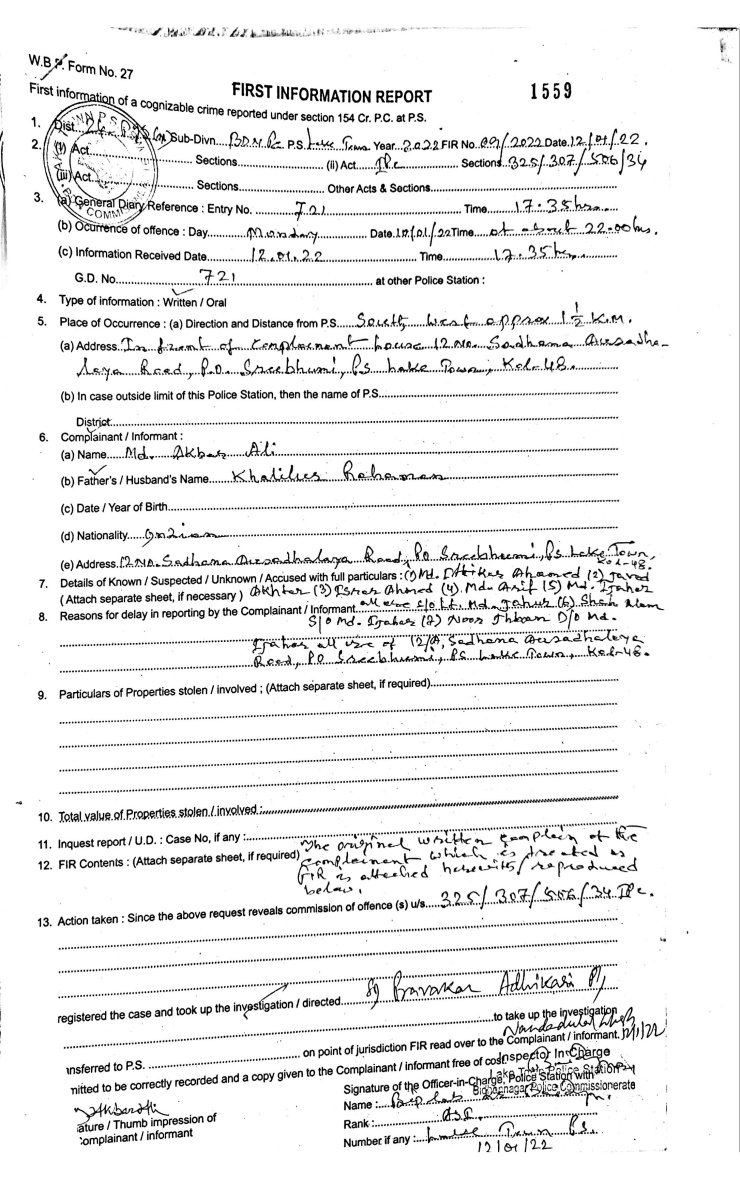 W.B.P. Form No. 27
FIRST INFORMATION REPORT 1559
First information of a cognizable crime reported under section 154 Cr. P.C. at P.S.
1. Dist. Sub-Divn. BDN P.S. Lake Town Year 2022 FIR No. 09/2022 Date 12/01/22.
2. (i) Act Sections (ii) Act IPC Sections 325/307/506/34
(iii) Act Sections Other Acts & Sections
3. (a) General Diary Reference : Entry No. 721 Time 17:35 hrs
(b) Ocurrence of offence : Day Monday Date 10/01/22 Time at about 22.00 hrs.
(c) Information Received Date 12.01.22 Time 17.35 hrs
G.D. No. 721 at other Police Station :
4. Type of information : Written / Oral
5. Place of Occurrence : (a) Direction and Distance from P.S. South West approx 1 1/2 K.M.
(a) Address In front of complainent house 12 No. Sadhana Ausadha-
laya Road, P.O. Sreebhumi, PS Lake Town, Kol-48.
(b) In case outside limit of this Police Station, then the name of P.S.
District
6. Complainant / Informant :
(a) Name Md. Akbar Ali
(b) Father's / Husband's Name Khalilur Rahaman
(c) Date / Year of Birth
(d) Nationality Indian
(e) Address 12 No. Sadhana Ausadhalaya Road, PO Sreebhumi, PS Lake Town, Kol-48.
7. Details of Known / Suspected / Unknown / Accused with full particulars : (1) Md. Ahamed (2) Javed
( Attach separate sheet, if necessary ) Akhter (3) Israr Ahmed (4) Md. Arif (5) Md. Izaher
8. Reasons for delay in reporting by the Complainant / Informant all are S/o Lt. Md. Jahur (6) Shah Alam
S/o Md. Izaher (7) Noor D/o Md.
Izaher all are of 12/A, Sadhana Ausadhalaya
Road, PO Sreebhumi, PS Lake Town, Kol-48.
9. Particulars of Properties stolen / involved ; (Attach separate sheet, if required)
10. Total value of Properties stolen / involved :
11. Inquest report / U.D. : Case No, if any :
12. FIR Contents : (Attach separate sheet, if required) The original written complain of the
complainent which is treated as
FIR is attached herewith/reproduced
below.
13. Action taken : Since the above request reveals commission of offence (s) u/s 325/307/506/34 IPC.
registered the case and took up the investigation / directed SI Pravakar Adhikari
to take up the investigation
nsferred to P.S. on point of jurisdiction FIR read over to the Complainant / informant.
mitted to be correctly recorded and a copy given to the Complainant / informant free of cost
Inspector In-Charge
Lake Town Police Station
Bidhannagar Police Commissionerate
Signature of the Officer-in-Charge, Police Station with
Name :
Rank :
Number if any : Lake Town PS.
12/01/22
ature / Thumb impression of
omplainant / informant